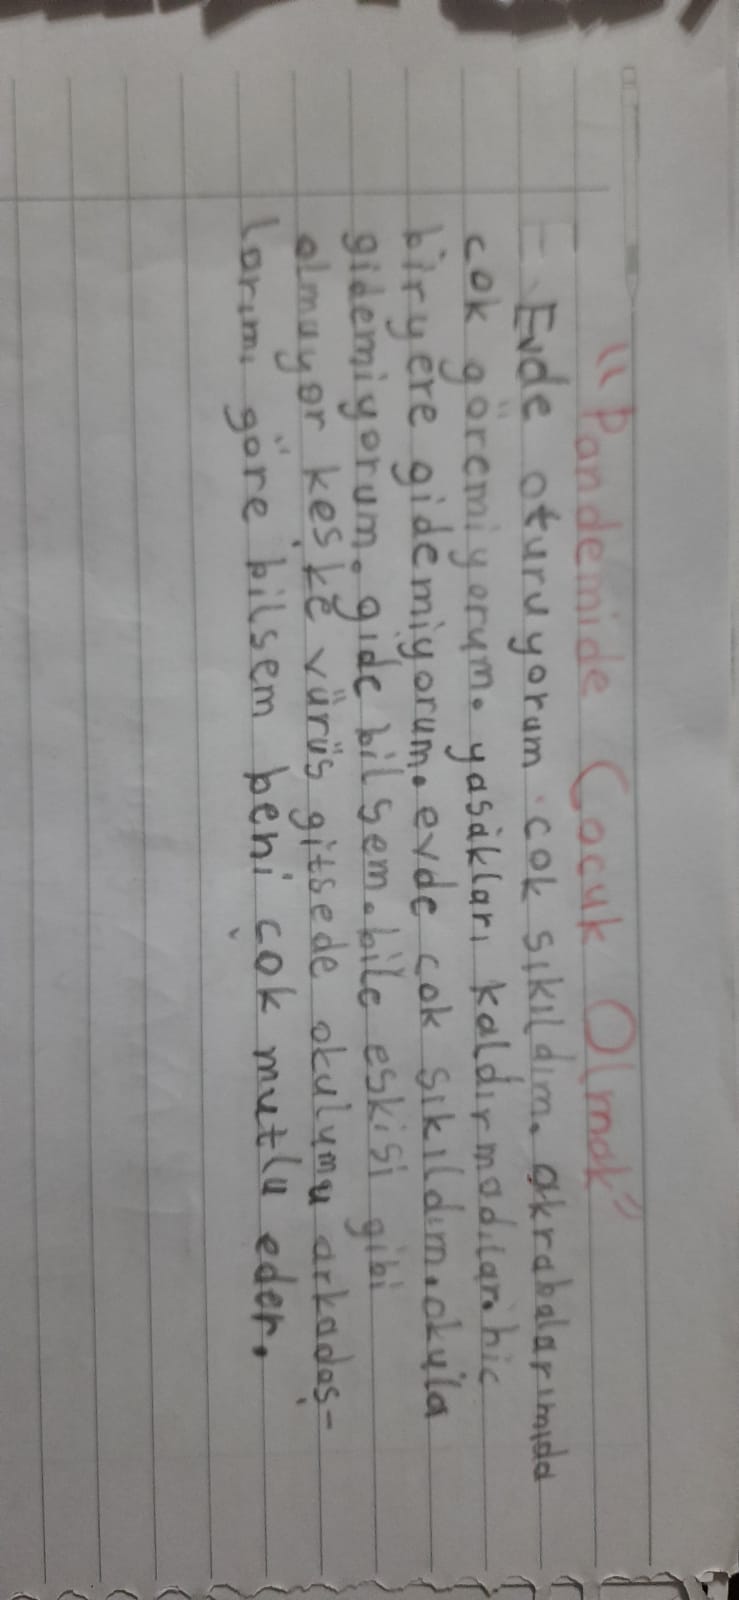 "Pandemide Çocuk Olmak"
Evde oturuyorum. cok sıkıldım. akrabalarımıda
cok göremiyorum. yasakları kaldırmadılar. hic
biryere gidemiyorum. evde cok sıkıldım. okula
gidemiyorum. gide bilsem. bile eskisi gibi
olmuyor keşke vürüs gitsede okulumu arkadaş-
larımı göre bilsem beni çok mutlu eder.